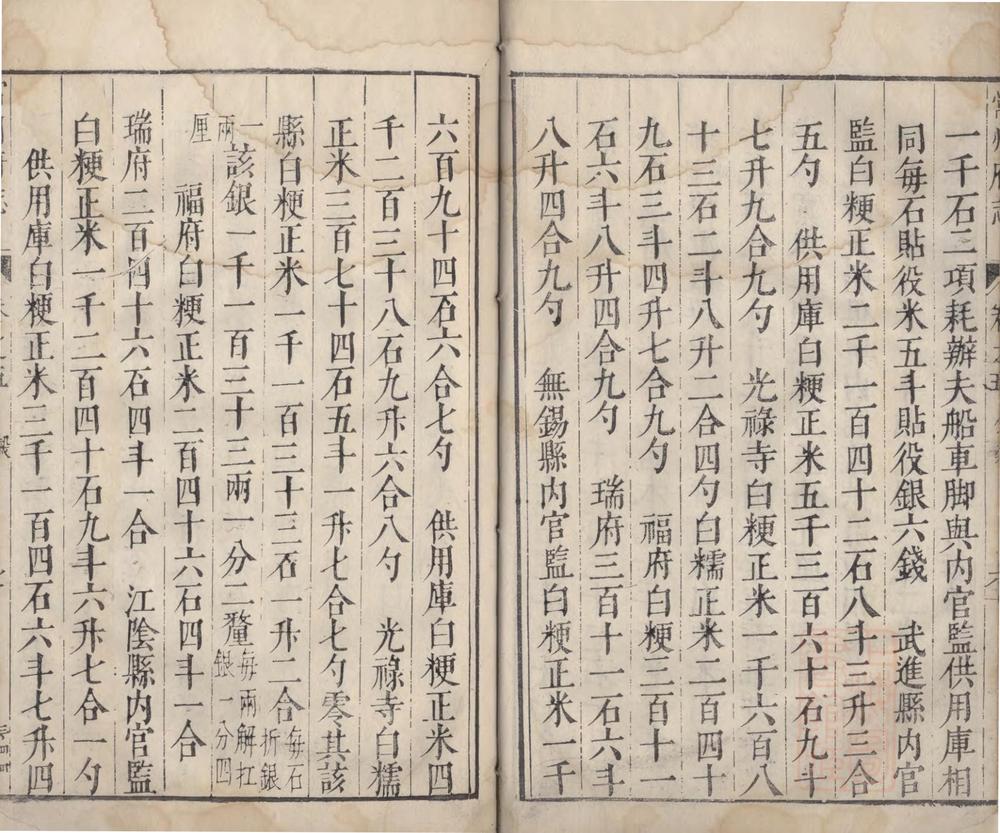 一千石二項耗辦夫船車脚與内官監供用庫相
同每石貼役米五斗貼役銀六錢　武進縣内官
監白粳正米二千一百四十二石八斗三升三合
五勺　供用庫白粳正米五千三百六十石九斗
七升九合九勺　光祿寺白粳正米一千六百八
十三石二斗八升二合四勺白糯正米二百四十
九石三斗四升七合九勺　福府白粳三百十一
石六斗八升四合九勺　瑞府三百十一石六斗
八升四合九勺　無錫縣内官監白粳正米一千
六百九十四石六合七勺　供用庫白粳正米四
千二百三十八石九升六合八勺　光祿寺白糯
正米三百七十四石五斗一升七合七勺零其該
縣白粳正米一千一百三十三石一升二合每石折銀
一兩該銀一千一百三十三兩一分二釐每兩解扛銀一分四
厘　福府白粳正米二百四十六石四斗一合
瑞府二百四十六石四斗一合　江陰縣内官監
白粳正米一千二百四十石九斗六升七合一勺
供用庫白粳正米三千一百四石六斗七升四